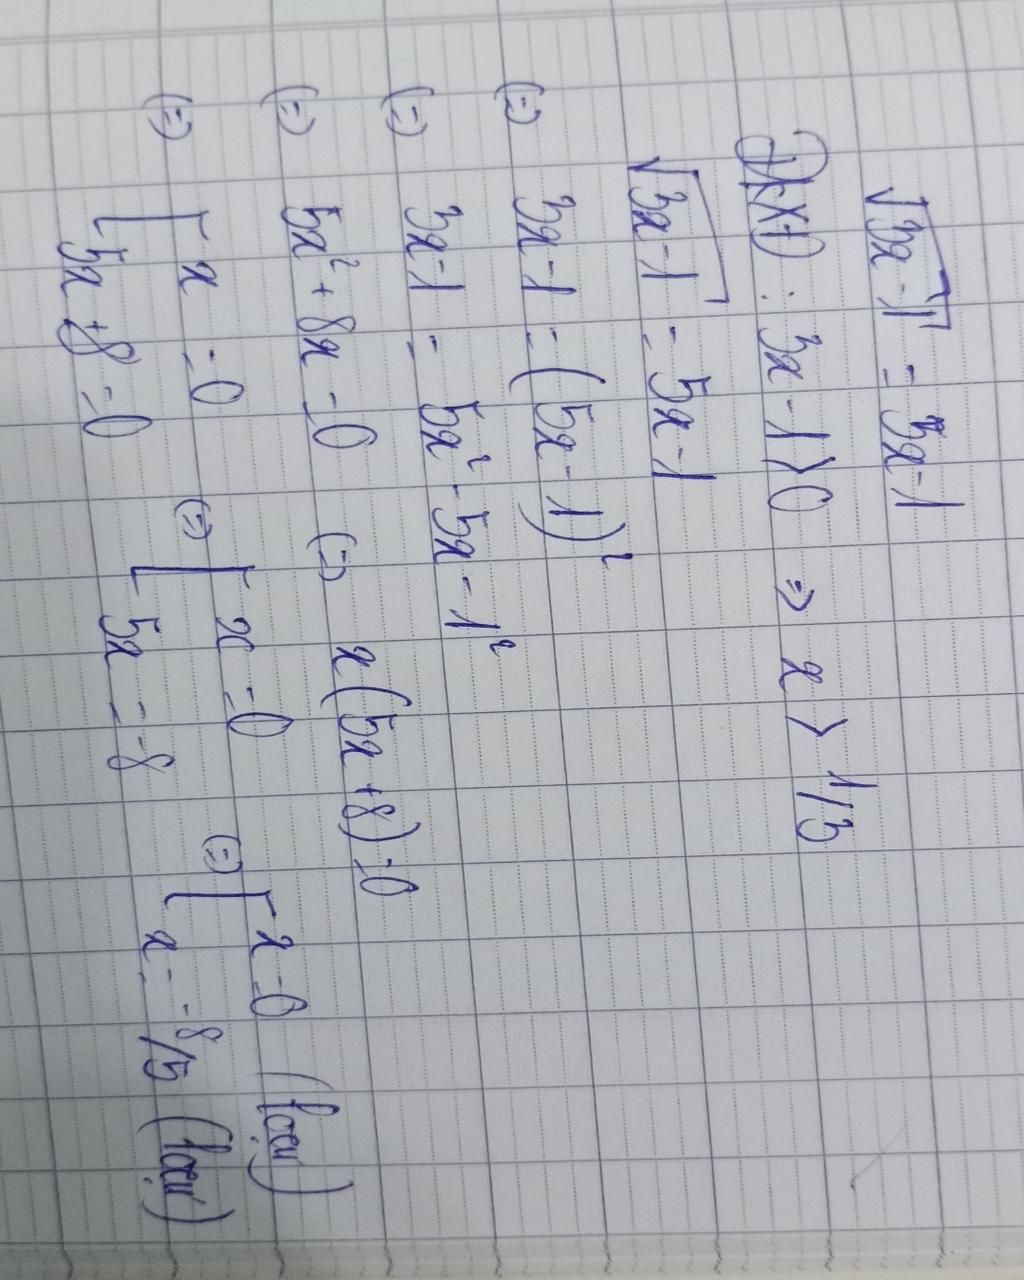 √3x-1 = 5x-1
ĐKXĐ : 3x - 1 > 0 => x > 1/3
√3x-1 = 5x-1
(=) 3x-1 = (5x-1)²
(=) 3x-1 = 5x² - 5x - 1²
(=) 5x² + 8x = 0 (=) x(5x+8)=0
(=) [ x = 0 (=) [ x = 0 (=) [ x = 0 (loại)
5x + 8 = 0 5x = -8 x = -8/5 (loại)